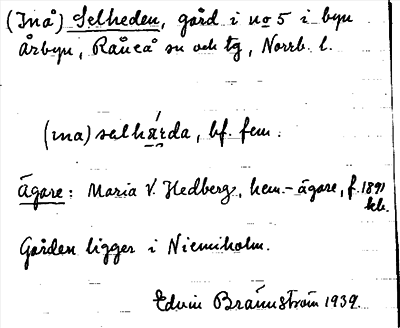 (Inå) Selheden, gård i no 5 i byn
Årbyn, Råneå sn och tg, Norrb. l.
(ina) selhä́rda, bf. fem.
Ägare: Maria V. Hedberg, hem.-ägare, f. 1891
Gården ligger i Niemiholm.
Edvin Brännström 1939.